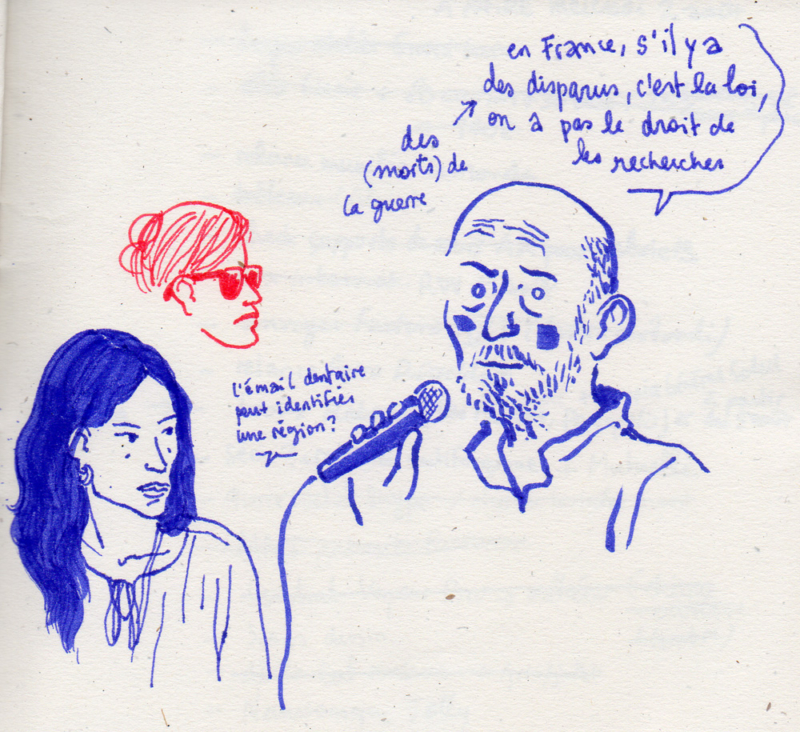 en France, s'il y a
des disparus, c'est la loi,
on a pas le droit de
les recherches
des
(morts) de
la guerre
l'émail dentaire
peut identifiés
une région?